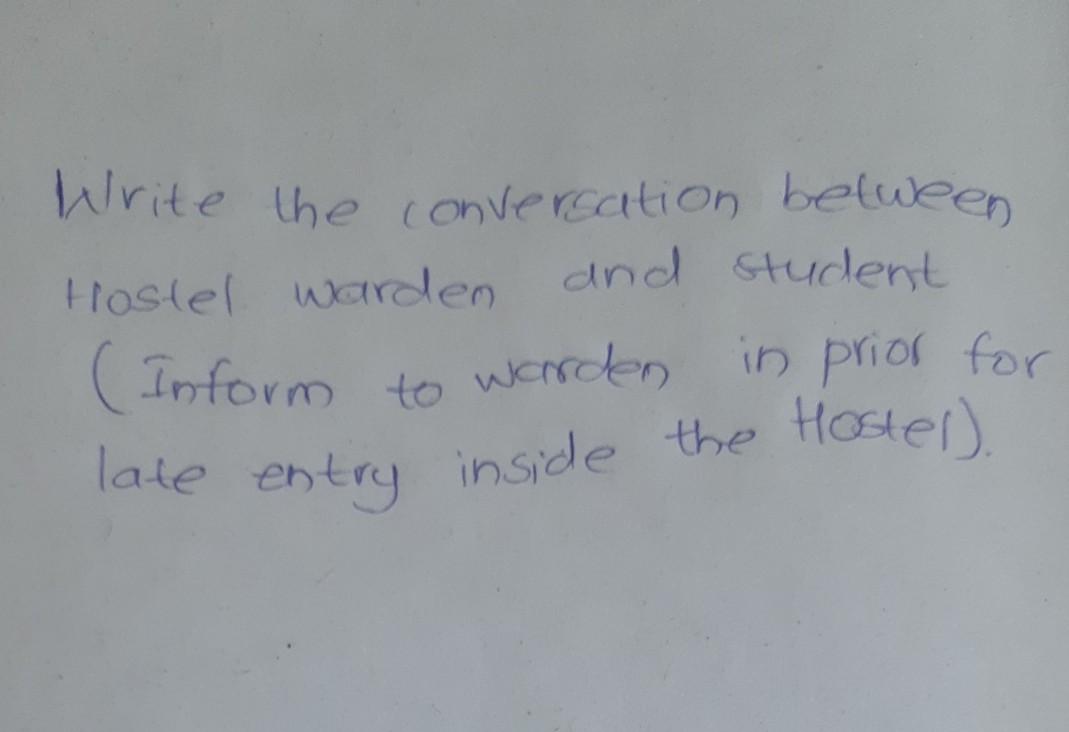 Write the conversation between
Hostel warden and student
(Inform to warden in prior for
late entry inside the Hostel).